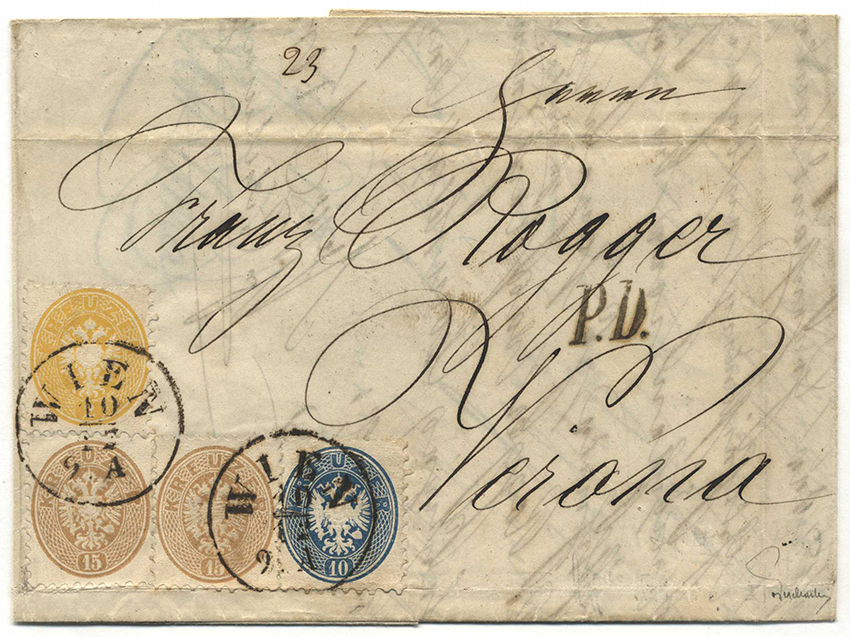 23
Franz Rogger
P.D.
Verona
KREUZER
WIEN
10
12
9. A
KREUZER
15
KREUZER
15
WIEN
9. A
KREUZER
10